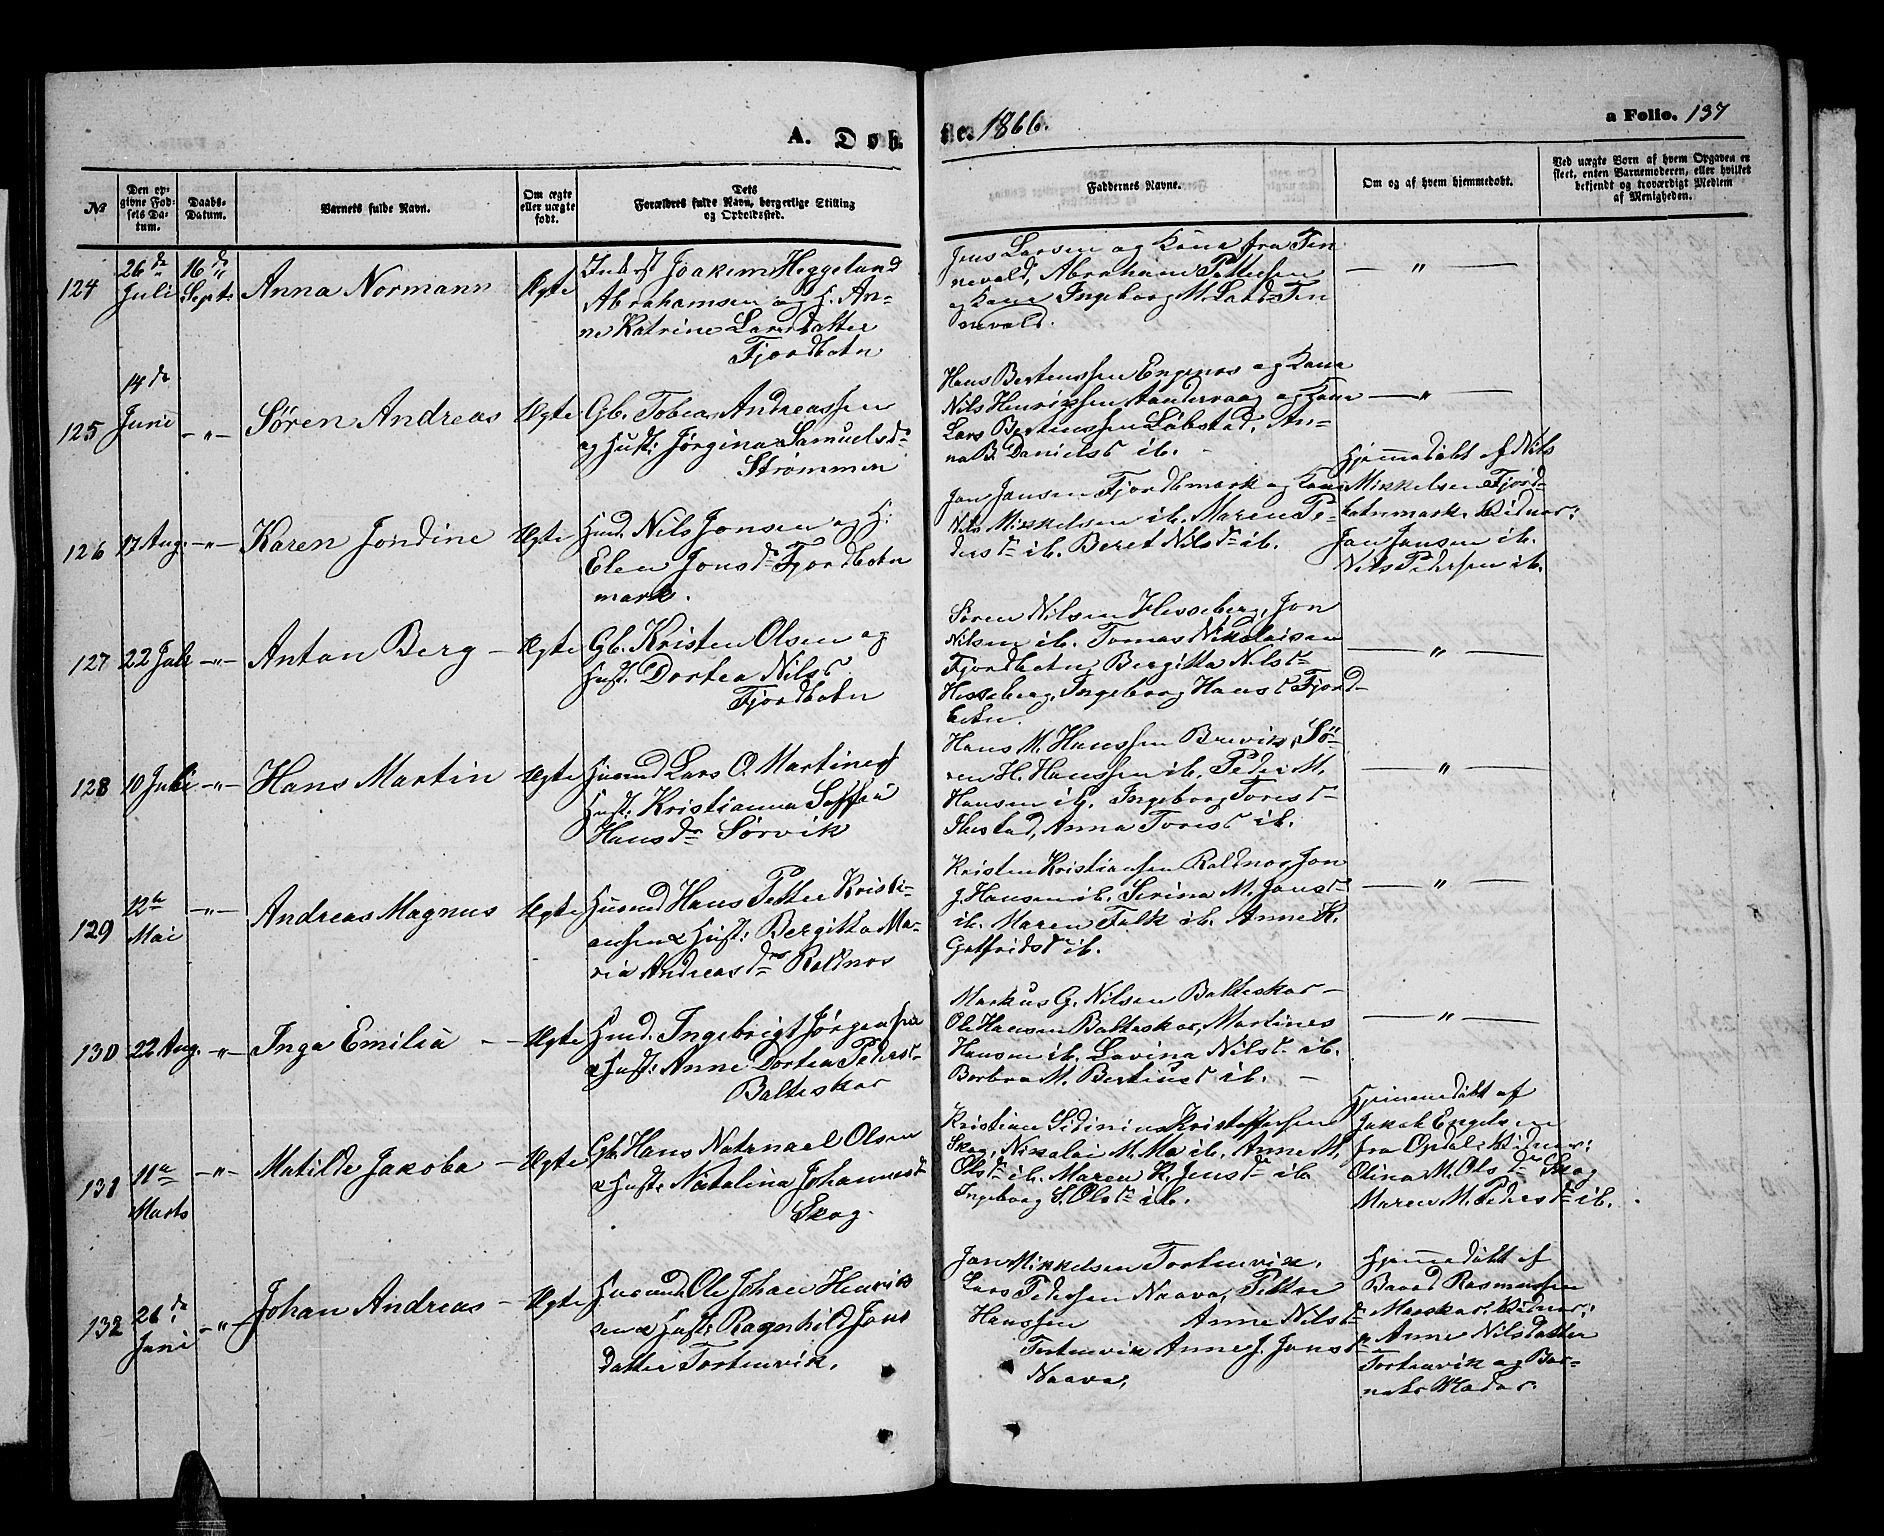 A. Døb
te. 1866.
a Folio. 137
№
Den op-
givne Fød-
sels Da-
tum.
Daabs-
Datum.
Barnets fulde Navn.
Om ægte
eller uægte
født.
Dets
Forældres fulde Navn, borgerlige Stilling
og Opholdssted.
Faddernes Navne.
Om og af hvem hjemmedøbt.
Ved uægte Børn af hvem Opgaven er
skeet, enten Barnemoderen, eller hvilket
bekjendt og troværdigt Medlem
af Menigheden.
124
26de
Juli
16de
Sept.
Anna Normann
Ægte
Inderst Joakim Heggelund
Abrahamsen og H. An-
ne Katrine Larsdatter
Fjordbotn
Jens Larsen og Kone fra Ten
nevold, Abraham Pettersen
og Kone Ingeborg M. Larsd Ten
nevold.
— " —
125
14de
Juni
- " -
Søren Andreas
Ægte
Gb. Tobias Andreassen
og Hust: Jørgina Samuelsdr
Strømmen
Hans Bertenssen Engenes og Kone
Nils Henrikssen Aandervaag og Kone
Lars Bertenssen Løbstad, An-
na B. Danielsd ib.
— " —
126
17 Aug.
- " -
Karen Jondine
Ægte
Husd. Nils Jonsen og H:
Elen Jonsdr Fjordbotn
mark.
Jon Jonsen Fjordbmark og Kone
Nils Mikkelsen ib. Maren Pe-
dersdr ib. Beret Nilsdr ib.
Hjemmedøbt af Nils
Mikkelsen Fjord-
botnmark. Vidner:
Jon Jonsen ib.
Nils Pedersen ib.
127
22 Juli
- " -
Anton Berg
Ægte
Gb. Kristen Olsen og
Hust. Dortea Nilsd
Fjordbotn
Søren Nilsen Hesseberg, Jon
Nilsen ib. Tomas Nikolaisen
Fjordbotn, Bergitta Nilsd
Hesseberg, Ingeborg Hansd Fjord-
botn.
— " —
128
10 Juli
- " -
Hans Martin
Ægte
Husmd Lars O. Martines
Hust: Kristianna Soffia
Hansdr Sørvik
Hans M. Hanssen Brevik, Sø-
ren H. Hanssen ib. Peder M.
Hansen ib. Ingeborg Toresd
Ibestad, Anna Toresd ib.
— " —
129
12te
Mai
- " -
Andreas Magnus
Ægte
Husmd Hans Petter Kristi-
ansen & Hust: Bergitta Ma-
ria Andreasdr Roldnes
Kristen Kristiansen Roldnes, Jon
J. Hansen ib. Serina M. Jonsd
ib. Maren Falk ib. Anne K.
Gotfridsd ib.
— " —
130
22 Aug.
- " -
Inga Emilia
Ægte
Husd. Ingebrigt Jørgensen
& Hust: Anne Dortea Pedersd
Balteskar
Markus G. Nilsen Balteskar
Ole Hansen Balteskar, Martines
Hansen ib. Lovina Nilsd ib.
Borbra M. Bertiusd ib.
— " —
131
11te
Marts
- " -
Matilde Jakoba
Ægte
Gb. Hans Natanael Olsen
& Hust: Natalina Johannesd
Skog.
Kristian Sidinius Kristoffersen
Skog, Nikolai M. Mo ib. Anne M.
Olsdr ib. Maren K. Jensdr ib.
Ingeborg S. Olsdr ib.
Hjemmedøbt af
Jakob Engelsen
fra Opdal. Vidner:
Olina M. Olsdr Skog
Maren M. Pedersdr ib.
132
26de
Juni
- " -
Johan Andreas
Ægte
Husmd Ole Johan Henrik
sen & Hust: Ragnhild Jons
datter Tortenvik.
Jon Mikkelsen Tortenvik,
Lars Pedersen Naava, Petter
Hanssen Anne Nilsd
Tortenvik Anne J. Jonsd
Naava,
Hjemmedøbt af
Baard Rasmussen
Maeskar, Vidner:
Anne Nilsdatter
Tortenvik og Bar-
nets Moder.